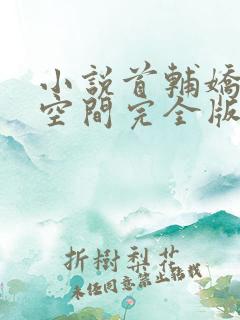 小説首輔嬌
空間完全版
折樹梨花
未经同意禁止转载